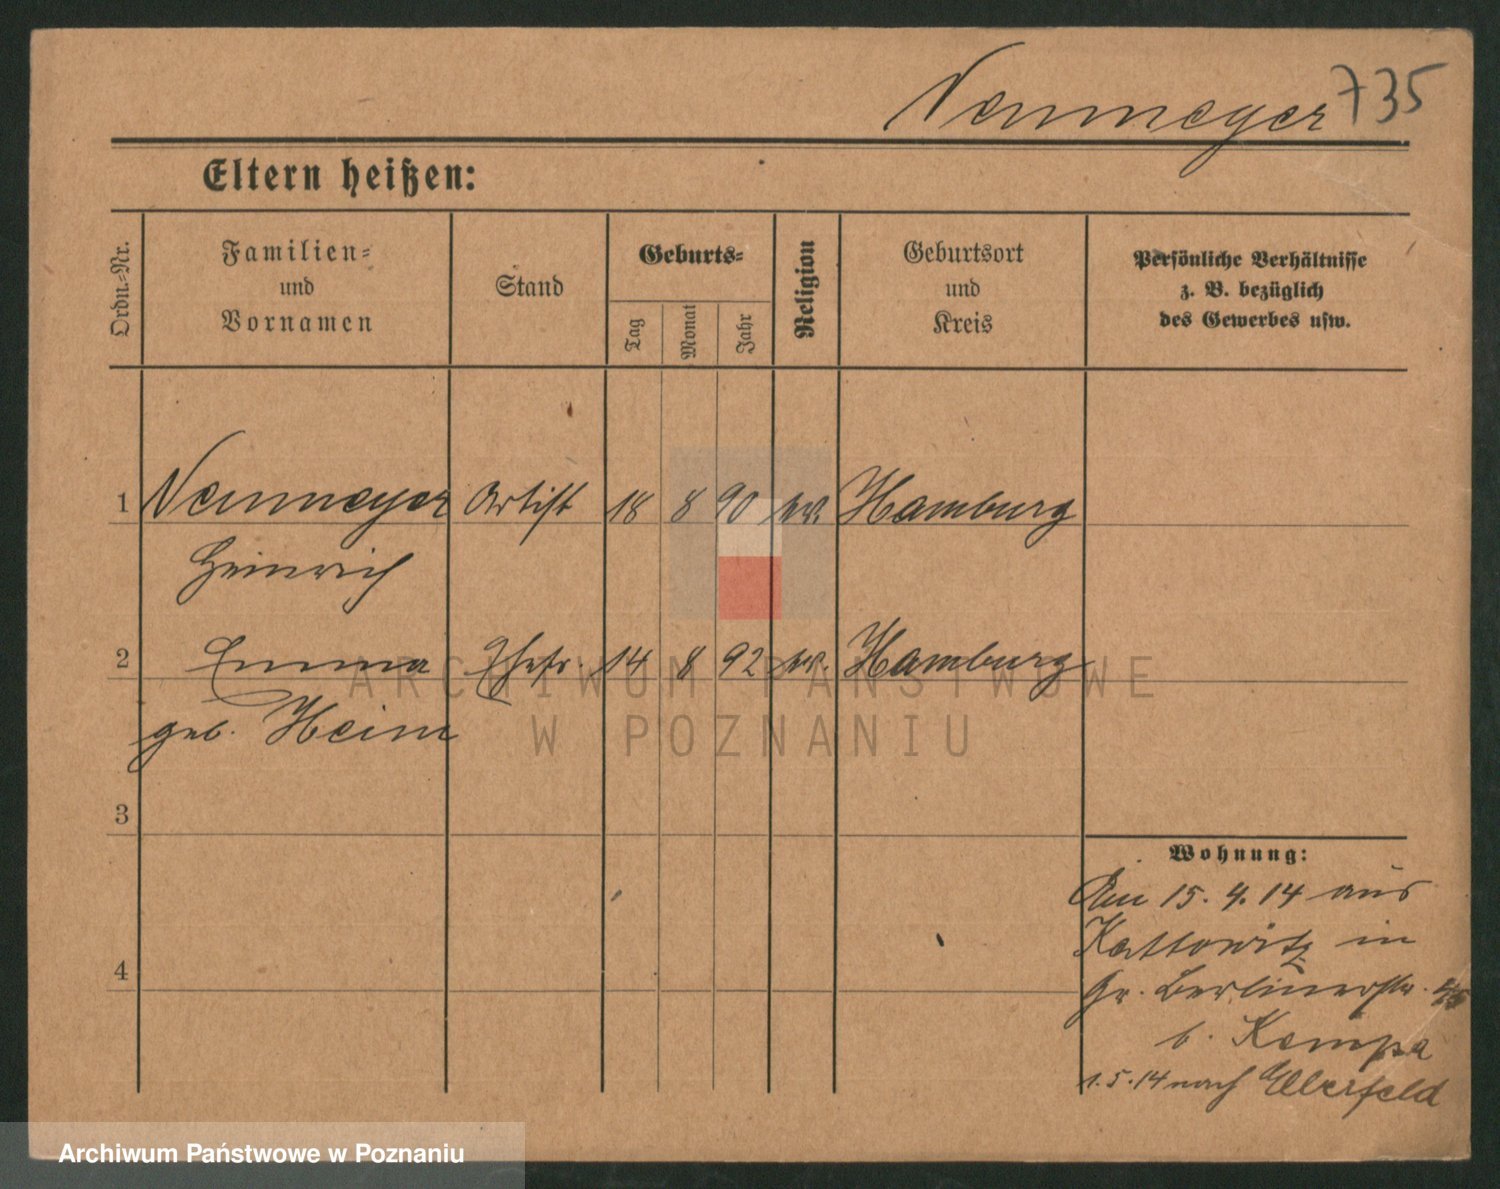 Neumeyer 735
Eltern heißen:
Ordn.-Nr.
Familien-
und
Vornamen
Stand
Geburts-
Tag
Monat
Jahr
Religion
Geburtsort
und
Kreis
Persönliche Verhältnisse
z. B. bezüglich
des Gewerbes usw.
1 Neumeyer Artist 18 8 90 ev. Hamburg
Heinrich
2 Emma Ehefr. 14 8 92 ev. Hamburg
geb. Heim
3
4
Wohnung:
Am 15. 4. 14 aus
Kattowitz in
Gr. Berlinerstr.
b. Kempa
1. 5. 14 nach Elberfeld
ARCHIWUM PAŃSTWOWE
W POZNANIU
Archiwum Państwowe w Poznaniu